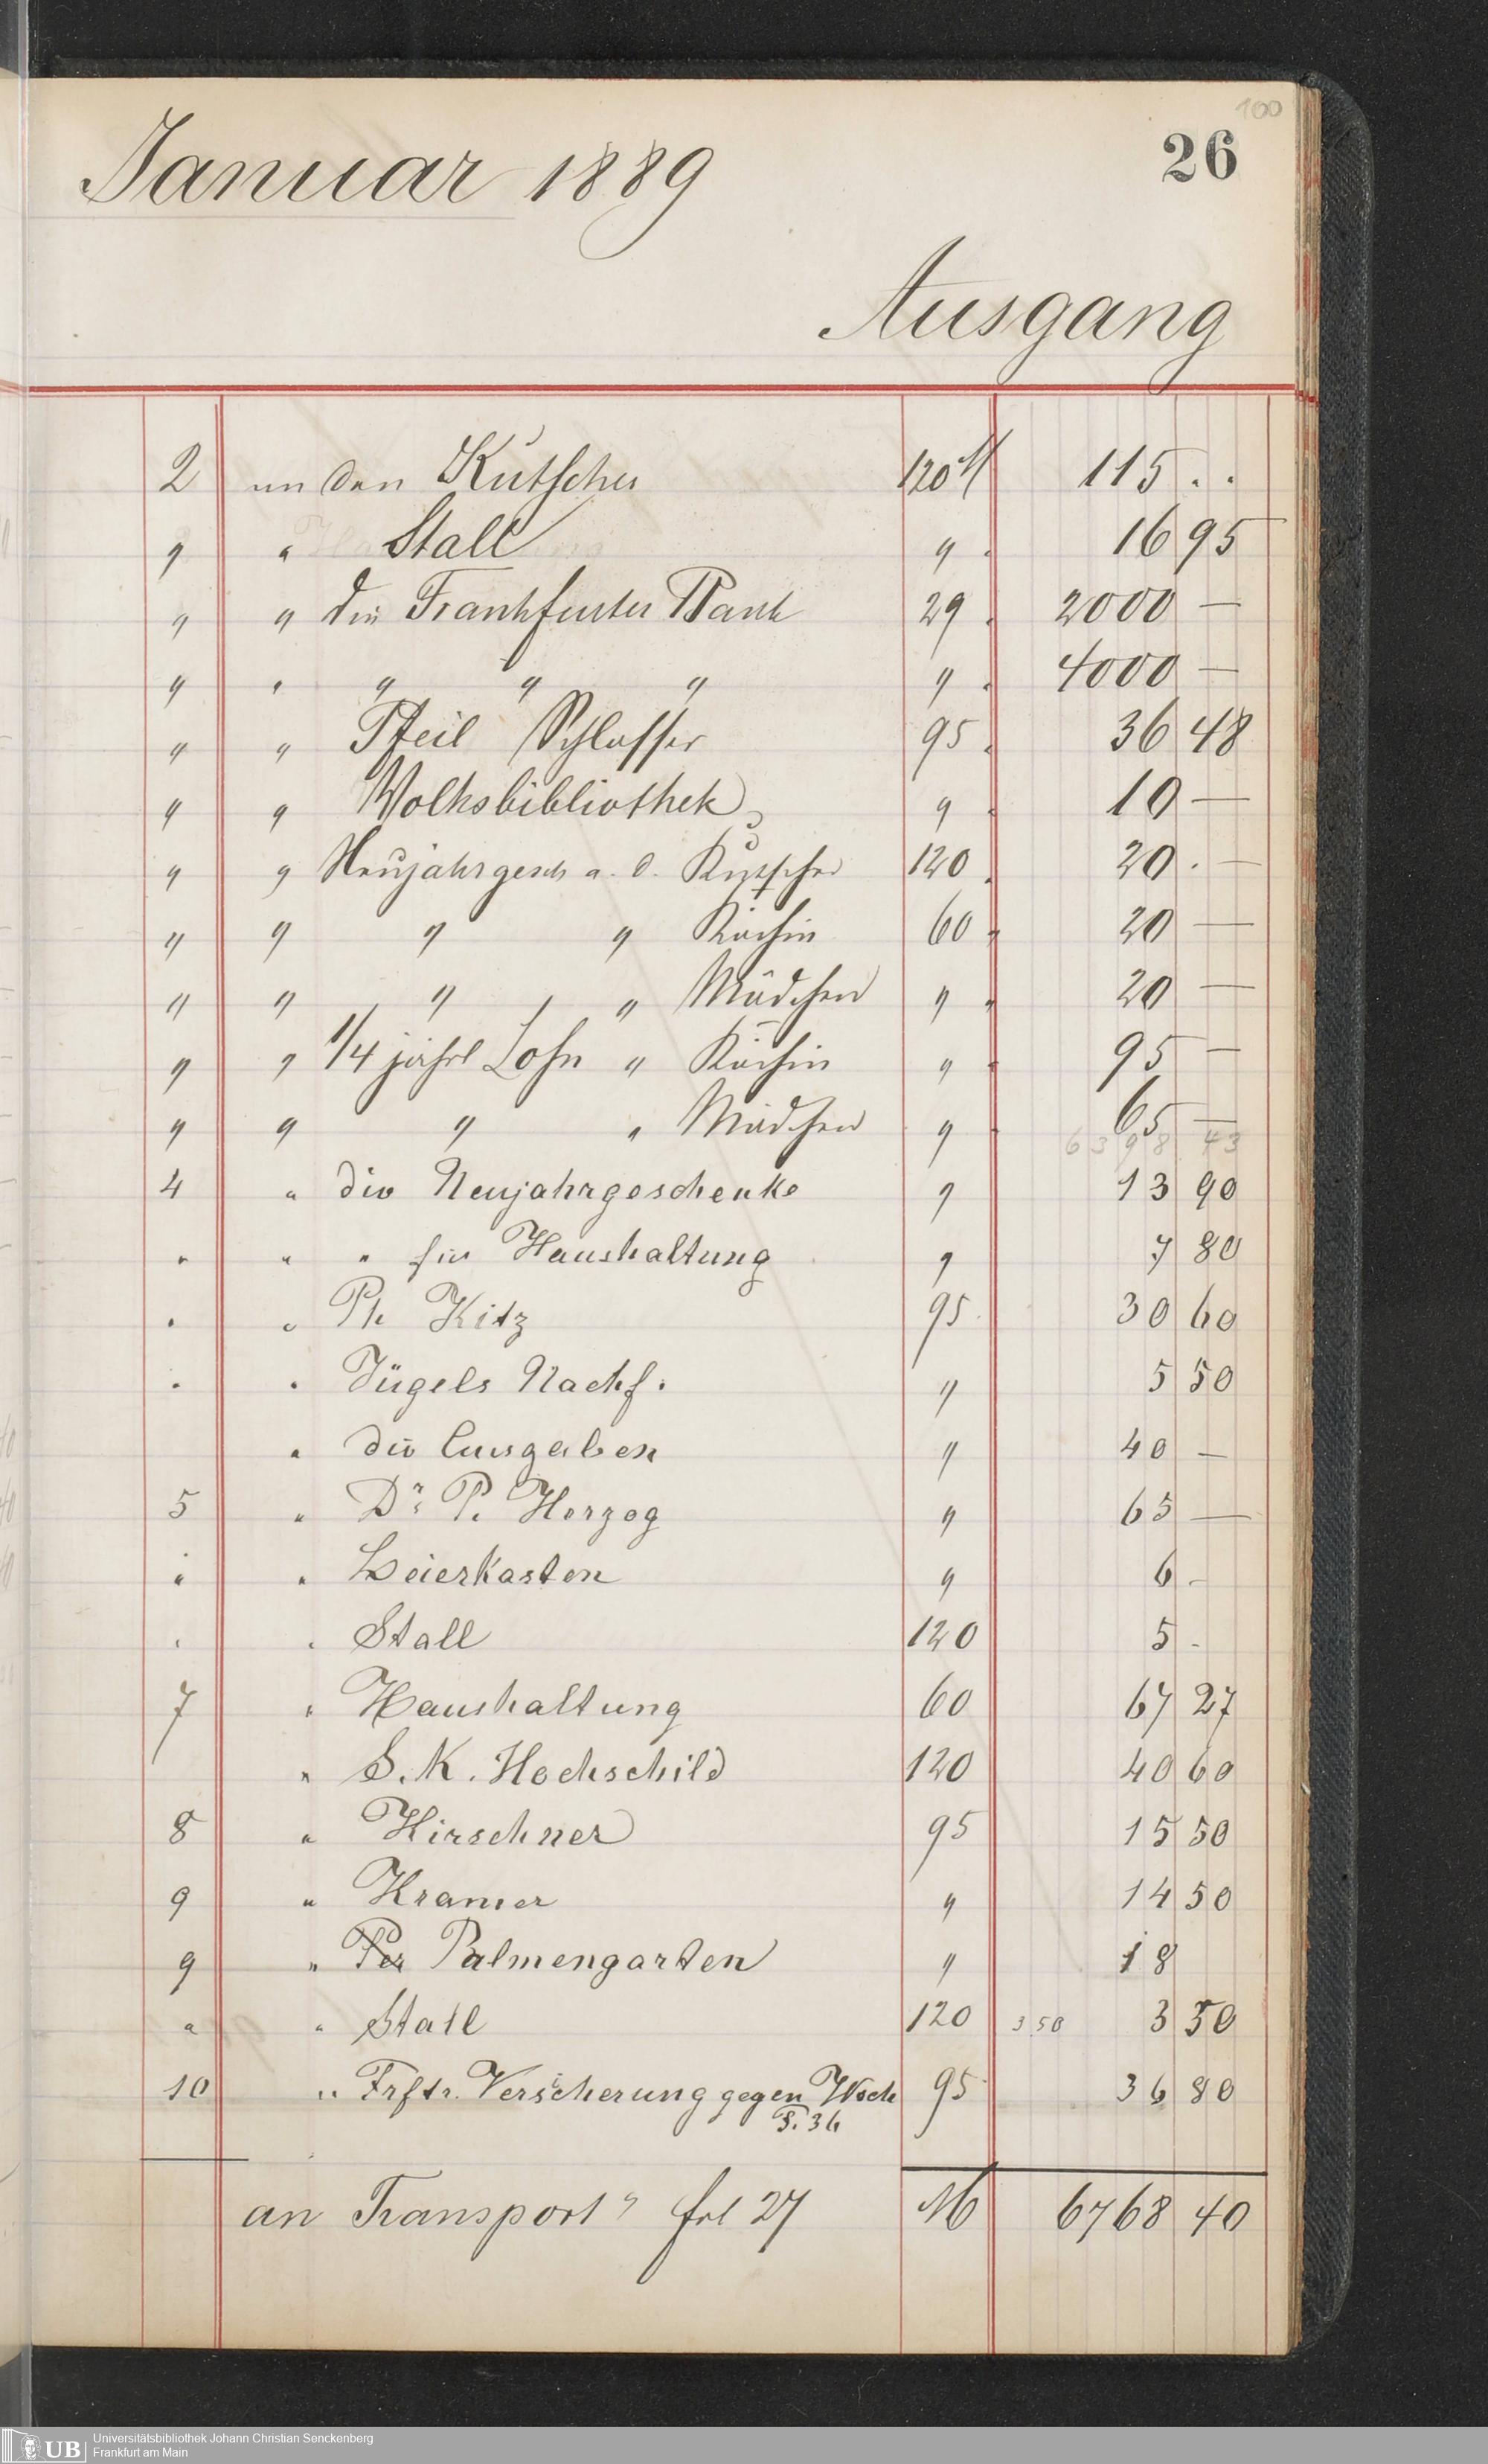 100
26
Januar 1889
Ausgang
2 an den Kutscher 120 M 115 . .
" " Stall " 16 95
" " die Frankfurter Bank 29 2000 —
" " " " " " 4000 —
" " Pfeil Schlosser 95 36 48
" " Volksbibliothek " 10 —
" " Neujahrgesch a. d. Kutscher 120 20 . —
" " " " Köchin 60 20 —
" " " " Mädchen " 20 —
" " 1/4 jährl Lohn " Köchin " 95 —
" " " " Mädchen " 65 —
6398 43
4 " div Neujahrgeschenke " 13 90
" " " für Haushaltung " 7 80
" " Ph Kitz 95 30 60
" " Jügels Nachf. " 5 50
" div Ausgaben " 40 —
5 " Dr. P. Herzog " 65 —
" " Leierkasten " 6 -
" " Stall 120 5 -
7 " Haushaltung 60 67 27
" S. K. Hochschild 120 40 60
8 " Hirschner 95 15 50
9 " Kramer " 14 50
9 " Per Palmengarten " 18
" " Stall 120 350 3 50
10 " Frftr. Versicherung gegen 95 36 80
S. 36
an Transport " fol 27 M 6768 40
UB
Universitätsbibliothek Johann Christian Senckenberg
Frankfurt am Main